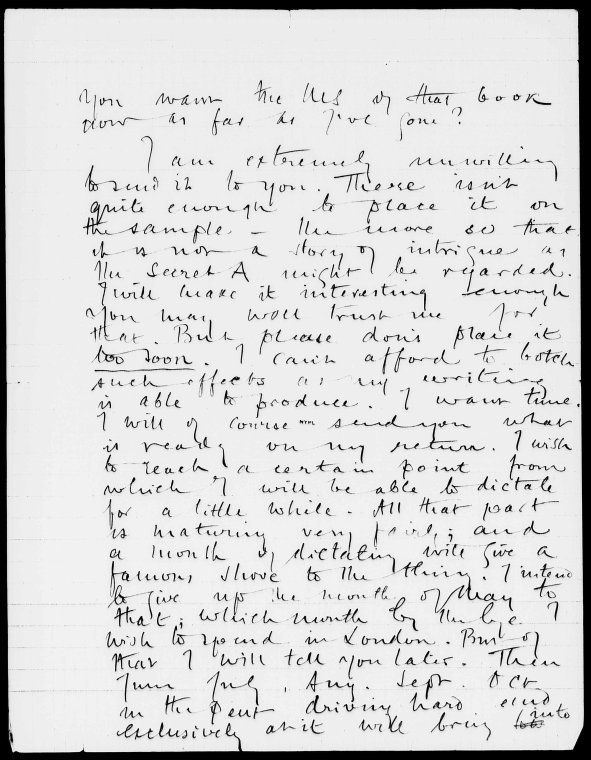 You want the MS of that book
now as far as I've gone?
I am extremely unwilling
to send it to you. There isn't
quite enough to place it on
the sample – the more so that
it is not a story of intrigue as
the Secret A might be regarded.
I will make it interesting enough
You may well trust me for
that. But please don't place it
too soon. I can't afford to botch
such effects as my writing
is able to produce. I want time.
I will of course send you what
is ready on my return. I wish
to reach a certain point from
which I will be able to dictate
for a little while. All that part
is maturing very fairly; and
a month of dictating will give a
famous shove to the thing. I intend
to give up the month of May to
that; which month by the bye I
wish to spend in London. But of
that I will tell you later. Then
June July, Aug. Sept. Oct
in the Pent driving hard and
exclusively at it will bring into